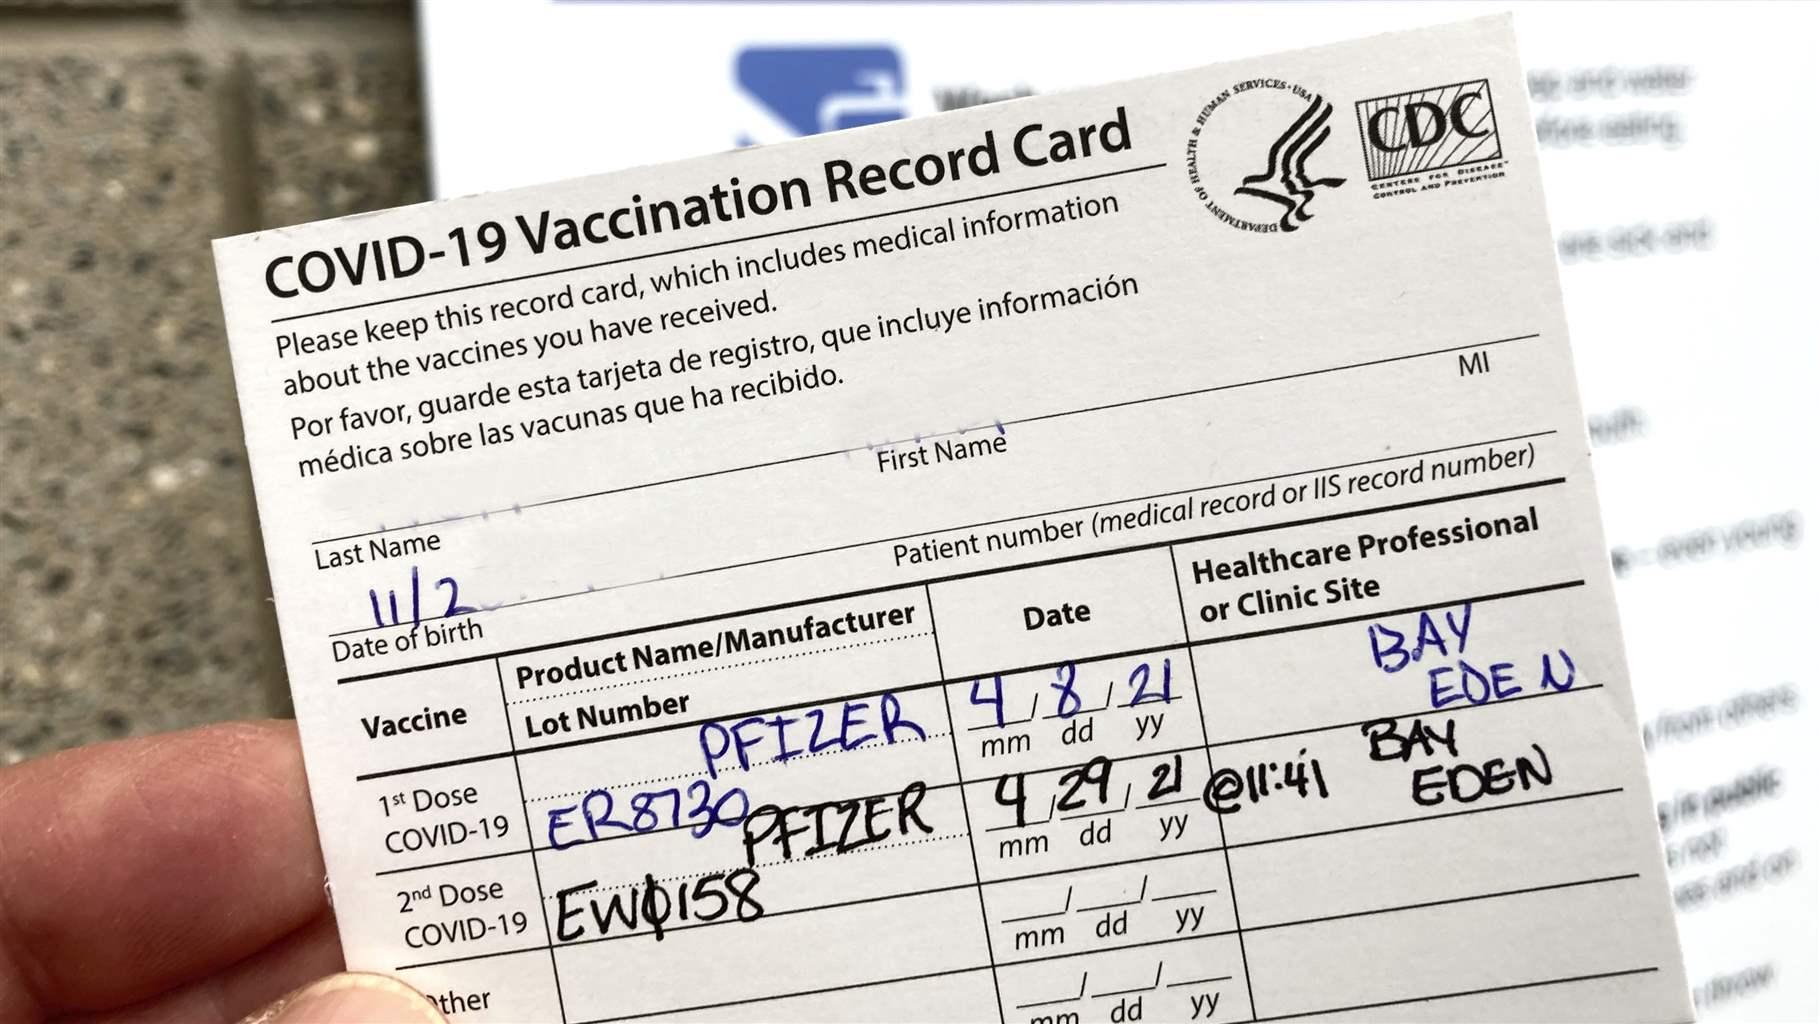 COVID-19 Vaccination Record Card
DEPARTMENT OF HEALTH & HUMAN SERVICES • USA
CDC
CENTERS FOR DISEASE
CONTROL AND PREVENTION
Please keep this record card, which includes medical information
about the vaccines you have received.
Por favor, guarde esta tarjeta de registro, que incluye información
médica sobre las vacunas que ha recibido.
Last Name First Name MI
11/2
Date of birth Patient number (medical record or IIS record number)
Vaccine
Product Name/Manufacturer
Lot Number
Date
Healthcare Professional
or Clinic Site
1st Dose
COVID-19
PFIZER
ER8730
4/8/21
mm dd yy
BAY
EDEN
2nd Dose
COVID-19
PFIZER
EWØ158
4/29/21
mm dd yy
@11:41 BAY
EDEN
ther
mm dd yy
mm dd yy